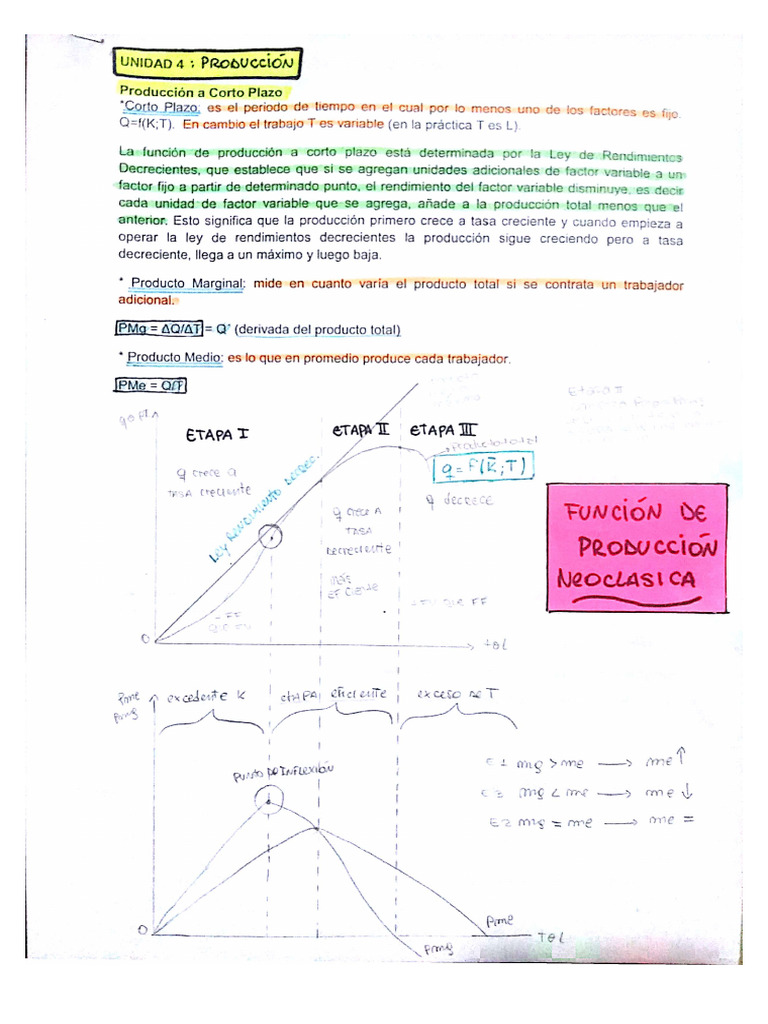 UNIDAD 4 : PRODUCCIÓN
Producción a Corto Plazo
*Corto Plazo: es el periodo de tiempo en el cual por lo menos uno de los factores es fijo.
Q=f(K;T). En cambio el trabajo T es variable (en la práctica T es L).
La función de producción a corto plazo está determinada por la Ley de Rendimientos
Decrecientes, que establece que si se agregan unidades adicionales de factor variable a un
factor fijo a partir de determinado punto, el rendimiento del factor variable disminuye, es decir
cada unidad de factor variable que se agrega, añade a la producción total menos que el
anterior. Esto significa que la producción primero crece a tasa creciente y cuando empieza a
operar la ley de rendimientos decrecientes la producción sigue creciendo pero a tasa
decreciente, llega a un máximo y luego baja.
* Producto Marginal: mide en cuanto varía el producto total si se contrata un trabajador
adicional.
PMg = ΔQ/ΔT = Q' (derivada del producto total)
* Producto Medio: es lo que en promedio produce cada trabajador.
PMe = Q/T
Etapa II
ETAPA I
ETAPA II
ETAPA III
Producto total
q = f(K̄;T)
q crece a
TASA creciente
Ley RENDIMIENTO DECREC.
q crece A
TASA
Decreciente
MÁS
EFICIENTE
q decrece
FUNCIÓN DE
PRODUCCIÓN
NEOCLASICA
- FF
QUE FV
- FV QUE FF
0
T o L
Pme
Pmg
excedente K
etAPA eficiente
exceso de T
PUNTO DE INFLEXIÓN
E 1 mg > me → me ↑
E 3 mg < me → me ↓
E 2 mg = me → me =
0
Pme
Pmg
T o L